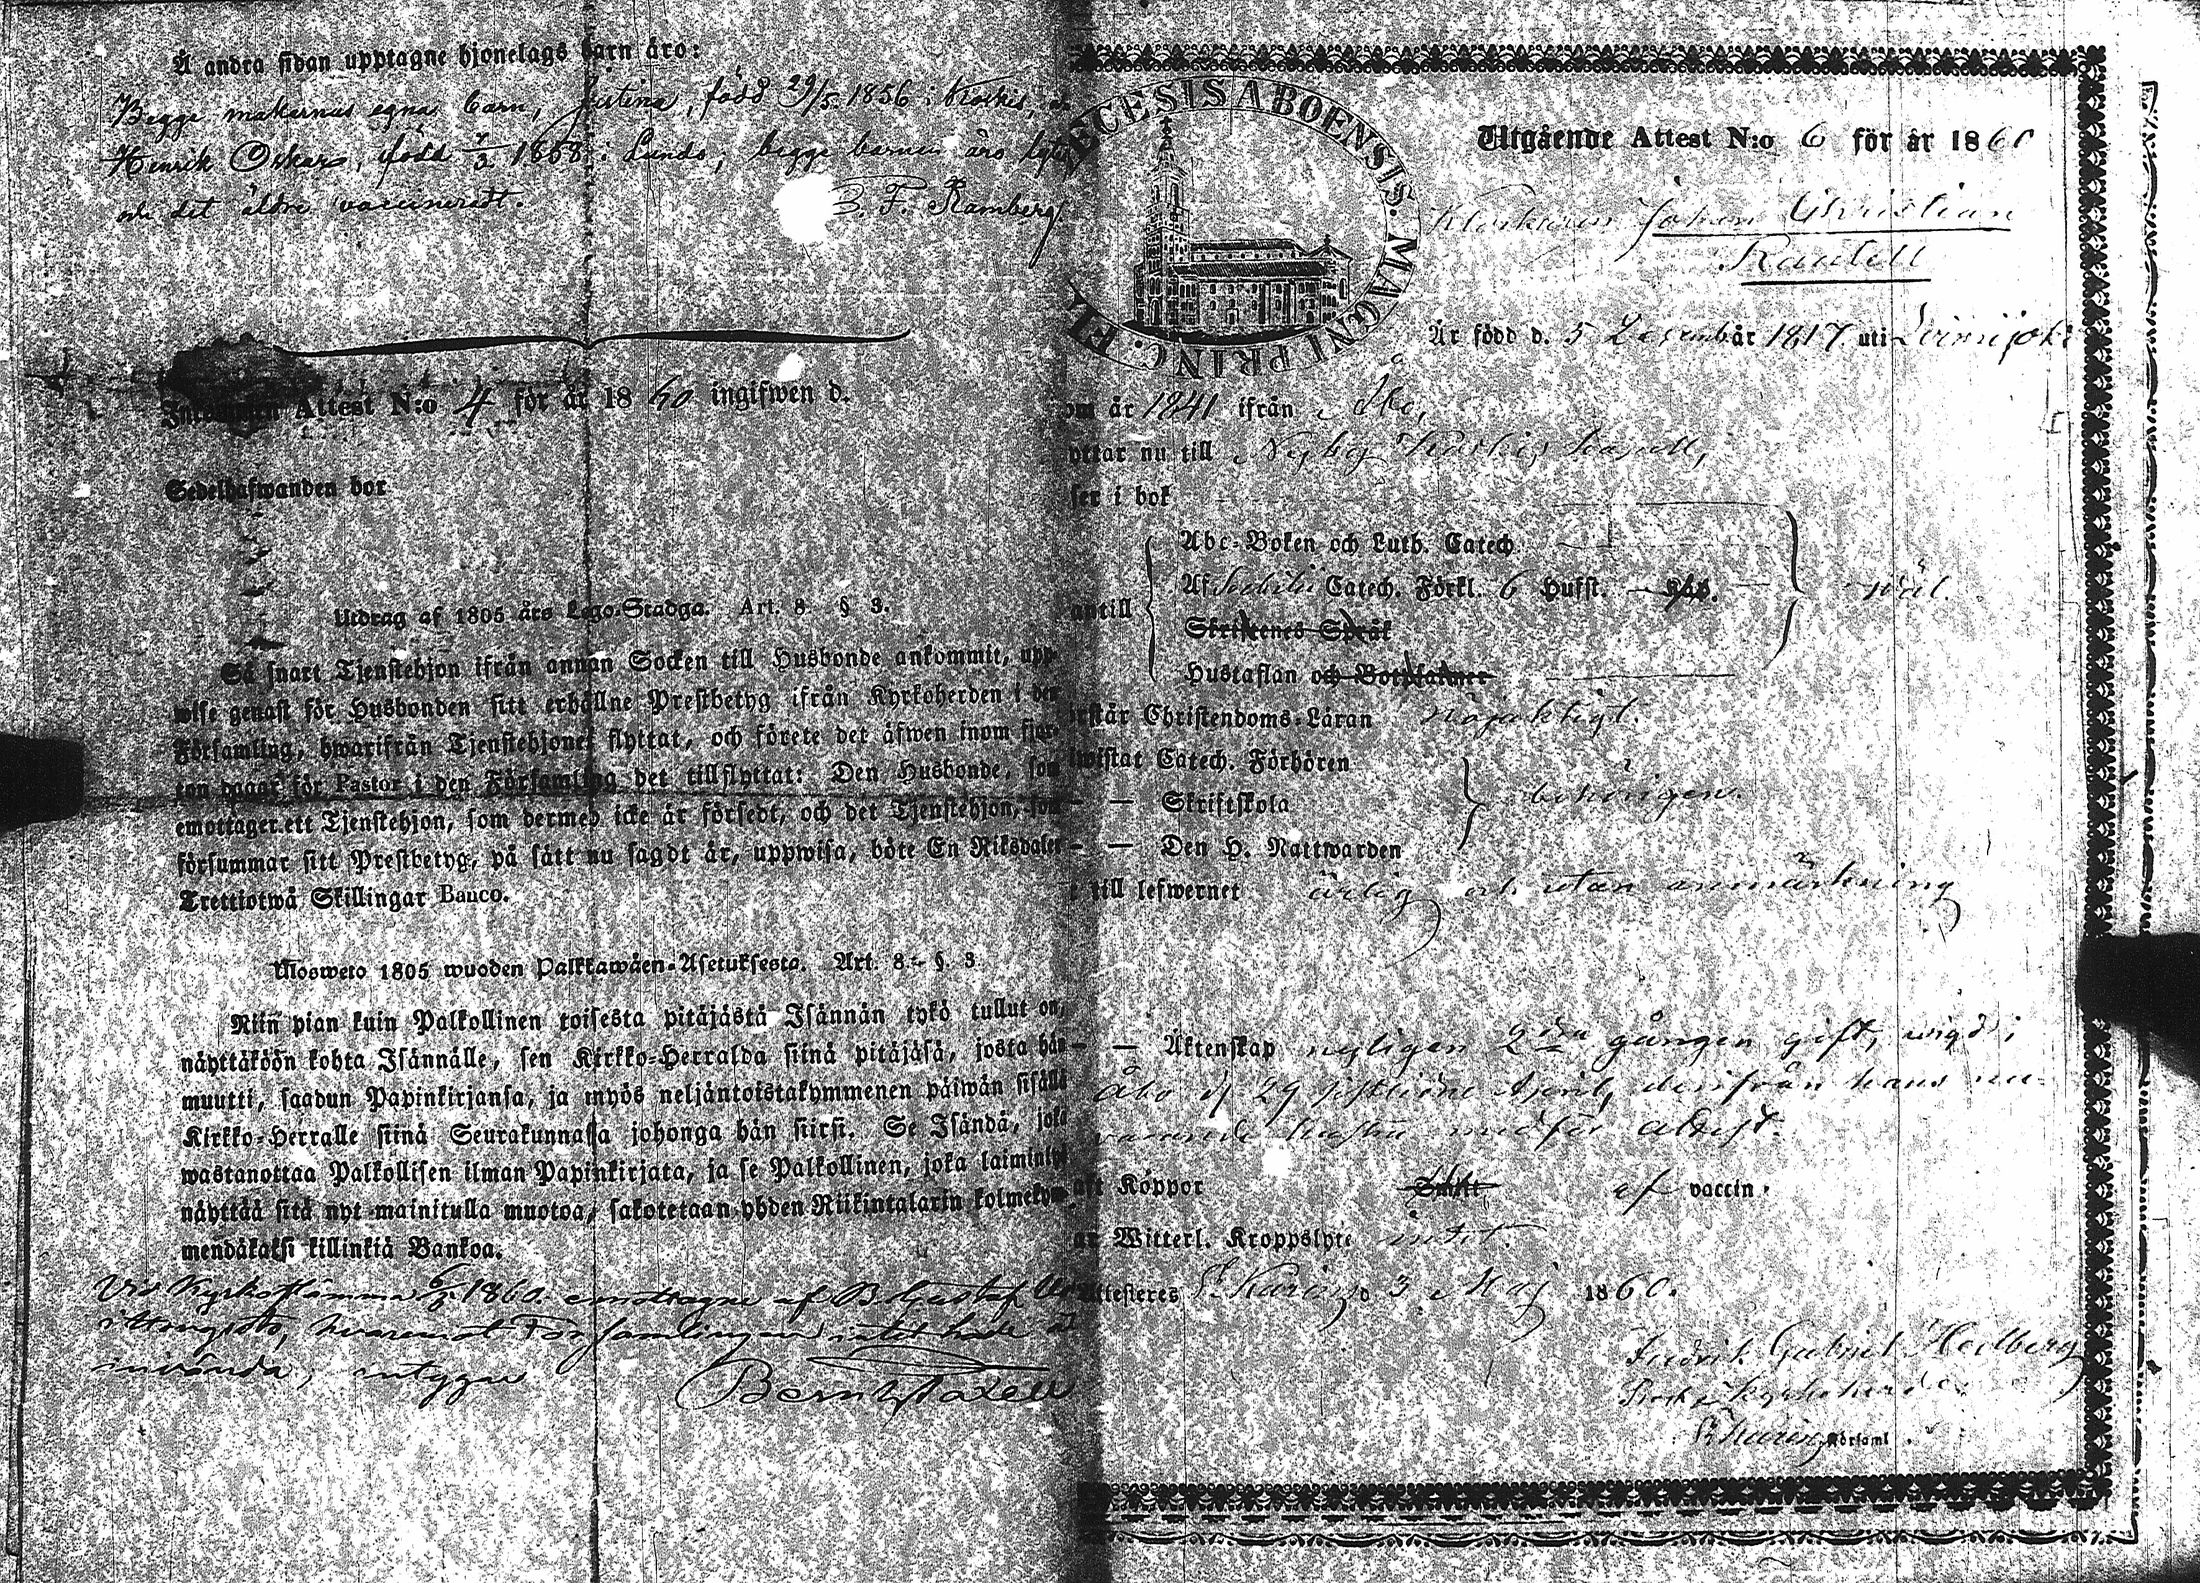 Å andra sidan upptagne hjonelags barn äro:
Begge makarnas egna barn, Justina, född 29/5 1856 i
Henrik Oskar, född 7/3 1858 i Lundo; begge barnen äro
och det äldre vaccineradt.
B. F. Ramberg
Attest N:o 4 för år 1860 ingifwen d.
Sedelhafwanden bor
Utdrag af 1805 års Lego-Stadga. Art. 8. § 3.
Så snart Tjenstehjon ifrån annan Socken till Husbonde ankommit, upp-
wise genast för Husbonden sitt erhållne Prestbetyg ifrån Kyrkoherden i den
Församling, hwarifrån Tjenstehjonet flyttat, och förete det äfwen inom fjor-
ton dagar för Pastor i den Församling det tillflyttat: Den Husbonde, som
emottager ett Tjenstehjon, som dermed icke är försedt, och det Tjenstehjon, som
försummar sitt Prestbetyg, på sätt nu sagdt är, uppwisa, böte En Riksdaler
Trettiotwå Skillingar Banco.
Ulosweto 1805 wuoden Palkkawäen-Asetuksesta. Art. 8. §. 3.
Niin pian kuin Palkollinen toisesta pitäjästä Isännän tykö tullut on,
näyttäköön kohta Isännälle, sen Kirkko-Herralda siinä pitäjäsä, josta hän
muutti, saadun Papinkirjansa, ja myös neljäntoistakymmenen päiwän sisällä
Kirkko-Herralle siinä Seurakunnassa johonga hän siirsi. Se Isändä, joka
wastanottaa Palkollisen ilman Papinkirjata, ja se Palkollinen, joka laiminlyö
näyttää sitä nyt mainitulla muotoa, sakotetaan yhden Riikintalarin kolmekym-
mendäkaksi killinkiä Bankoa.
Vid Kyrkostämma 6/5 1860 emottagne af B. Gustaf
hvaremot Församlingen intet hade att
invända; intygar
Bernh
DIOECESIS ABOENSIS. MAGNI PRINC. FI
Utgående Attest N:o 6 för år 1860
Johan Christian
Är född d. 5 Decemb år 1817 uti
om år 1841 ifrån
ottar nu till Nyby Kapell,
ser i bok
Abc-Boken och Luth. Catech.
Af Catech. Förkl. 6 Hufst.
antill
wäl.
Skriftenes Språk
Hustaflan och Botpsalmer
rstår Christendoms-Läran nöjaktigt.
iwistat Catech. Förhören
— — Skriftskola
behörigen.
— — Den H. Nattwarden
till lefwernet ärlig och utan anmärkning
— — Äktenskap nyligen 2dra gången gift, wigd i
Åbo d 29 sistlidne April, derifrån hans nu-
varande hustru medför attest.
aft Koppor Smitt af vaccin.
ar Witterl. Kroppslyte intet.
Attesteres S:t Karins d 3 Maj 1860.
Fredrik Gabriel Hedberg
Prost Kyrkoherde
S:t Karins Församl.